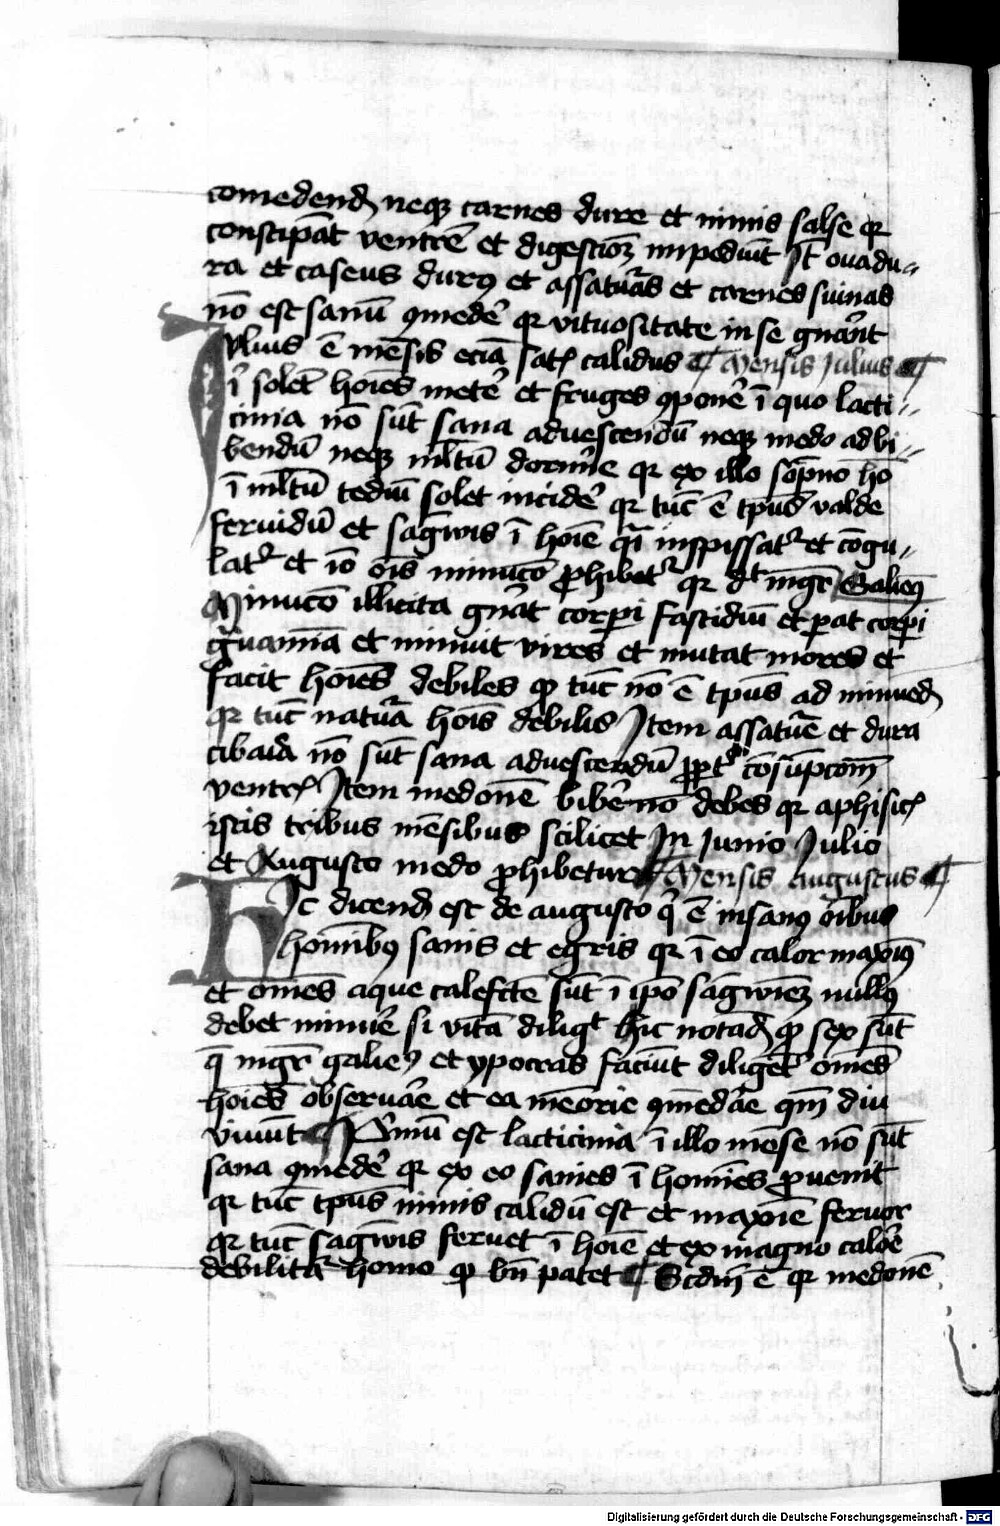 comedend neq carnes dure et nimis salse qr
constipāt ventrē et digestionē impediūt Jt ova du„
ra et caseus durꝯ et assatūras et carnes suinas
nō est sanū ꝯmedē qr vituositate in se gnānt
Julius ē mēsis eciā satꝭ calidus ¶ Mensis Julius ¶
ī solēt hoīes metē et fruges ꝯponē ī quo lacti„
cinia nō sūt sana ad vescendū neqꝫ medo ad bi„
bendū neqꝫ mltū dormīe qr ex illo sōpno hō
ī mltū tediū solet incidē qr tūc ē tp̄us valde
feruidū et sāgwis ī hoīe q̄i inspissatr et cōgu„
latr et iō oīs minucō ꝓhibetr qr dt mgr Galienꝯ
Minucō illicita gnāt corpi fastidiū et parat corpi
gͣuamīa et minuit vires et mutat mores et
facit hoīes debiles qꝫ tūc nō ē tp̄us ad minuēd
qr tūc natūra hoīs debilis Jtem assatūre et dura
cibaria nō sūt sana ad vescendū ꝓpt cōsūpcōm
ventrꝭ Jtem medonē bibē nō debes qr a phisicꝭ
istis tribus mēsibus scilicet In Junio Julio
et Augusto medo ꝓhibetur ¶ Mensis augustus ¶
Hic dicend est de augusto q̄ ē insanꝯ oībus
hoīnibꝯ sanis et egris qr ī eo calor maxīꝯ
et omēs aque calefcte sūt ī ipō sāgwinē nullꝯ
debet minuē si vitā diligt hic notād qꝫ sex sūt
q̄ mgr galienꝯ et ypocras faciūt diligēt omēs
hoīes obseruāre et ea mēorie ꝯmēdāre qm̄ diu
viuūt ¶ Primū est lacticinia ī illo mēse nō sūt
sana ꝯmedē qr ex eo sanies ī homīes ꝓuenit
qr tūc tp̄us nimis calidū est et maxīe feruor
qr tūc sāgwis feruet ī hoīe et ex magno calōre
debilitatr homo qꝫ bn̄ patet ¶ Scdm ē qr medonē
Digitalisierung gefördert durch die Deutsche Forschungsgemeinschaft - DFG